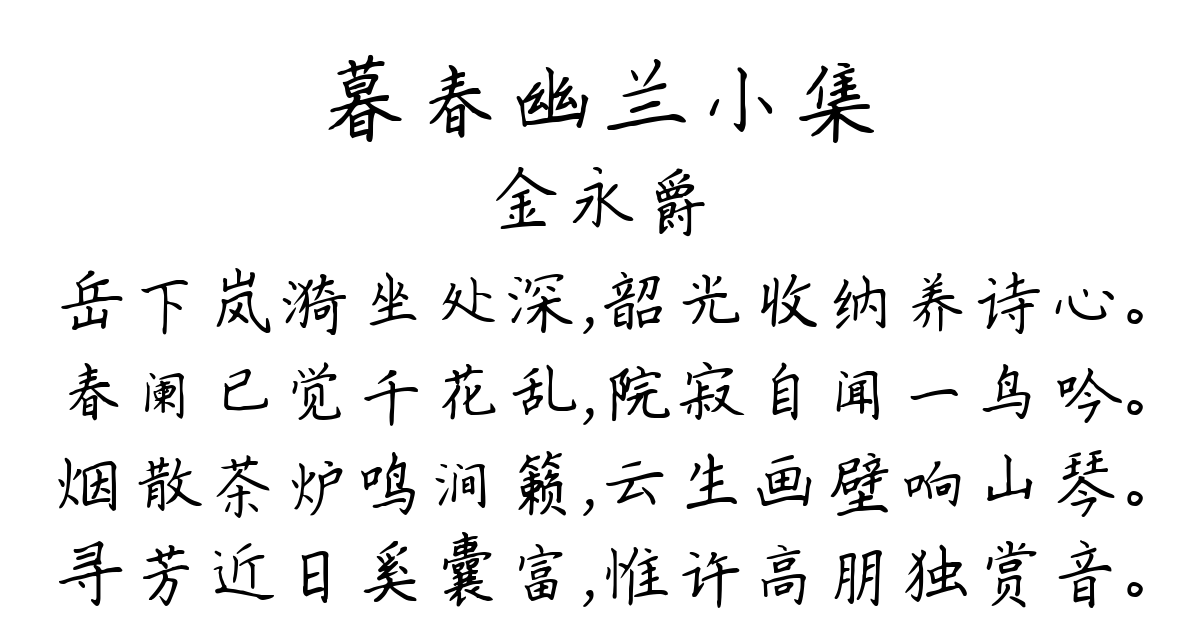 暮春幽兰小集
金永爵
岳下岚漪坐处深,韶光收纳养诗心。
春阑已觉千花乱,院寂自闻一鸟吟。
烟散茶炉鸣涧籁,云生画壁响山琴。
寻芳近日奚囊富,惟许高朋独赏音。